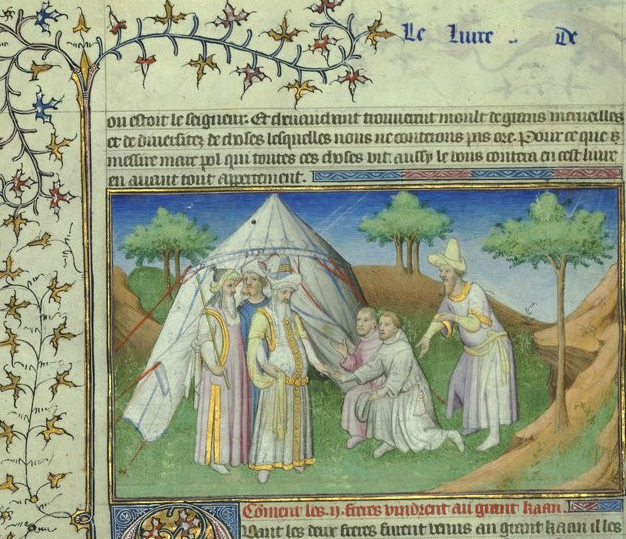 Le Liure De
ou estoit le seigneur. Et cheuauchant trouuerent moult de grans merueilles
et de diuersitez de choses lesquelles nous ne conterons pas ore. Pour ce que
messire marc pol qui toutes ces choses vit aussy le vous contera en cest liure
en auant tout appertement.
Cõment les .ij. freres vindrent au grant kaan.
Quant les deux freres furent venus au grant kaan il les